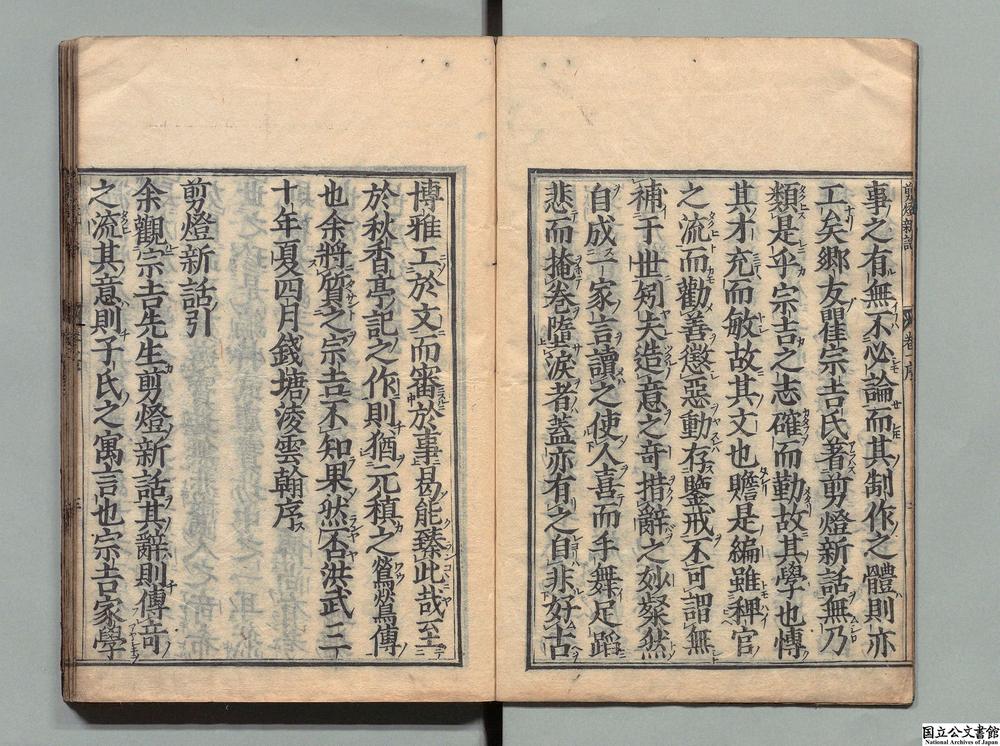 事之有無不必論而其制作之體則亦
工矣鄉友瞿宗吉氏著剪燈新話無乃
類是乎宗吉之志確而勤故其學也博
其才充而敏故其文也贍是編雖稗官
之流而勸善懲惡動存鑒戒不可謂無
補于世矧夫造意之奇措辭之妙粲然
自成一家言讀之使人喜而手舞足蹈
悲而掩卷墮淚者蓋亦有之自非好古
博雅工於文而審於事曷能臻此哉至
於秋香亭記之作則猶元稹之鶯鶯傳
也余將質之宗吉不知果然否洪武三
十年夏四月錢塘凌雲翰序
剪燈新話引
余觀宗吉先生剪燈新話其辭則傳奇
之流其意則子氏之寓言也宗吉家學
剪燈新話
卷一序
国立公文書館
National Archives of Japan